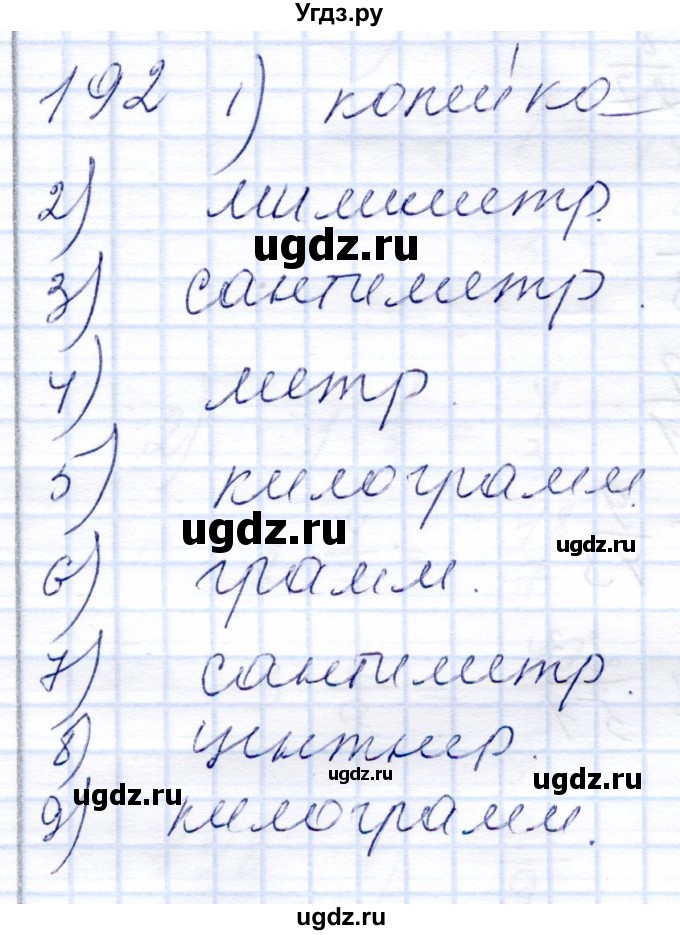 Угдз.ру
192 1) копейка
2) миллиметр.
ugdz.ru
3) сантиметр.
4) метр.
5) килограмм.
ugdz.ru
ugdz.ru
6) грамм.
7) сантиметр.
8) центнер.
ugdz.ru
ugdz.ru
ugdz.ru
9) килограмм.
ugdz.ru
ugdz.ru